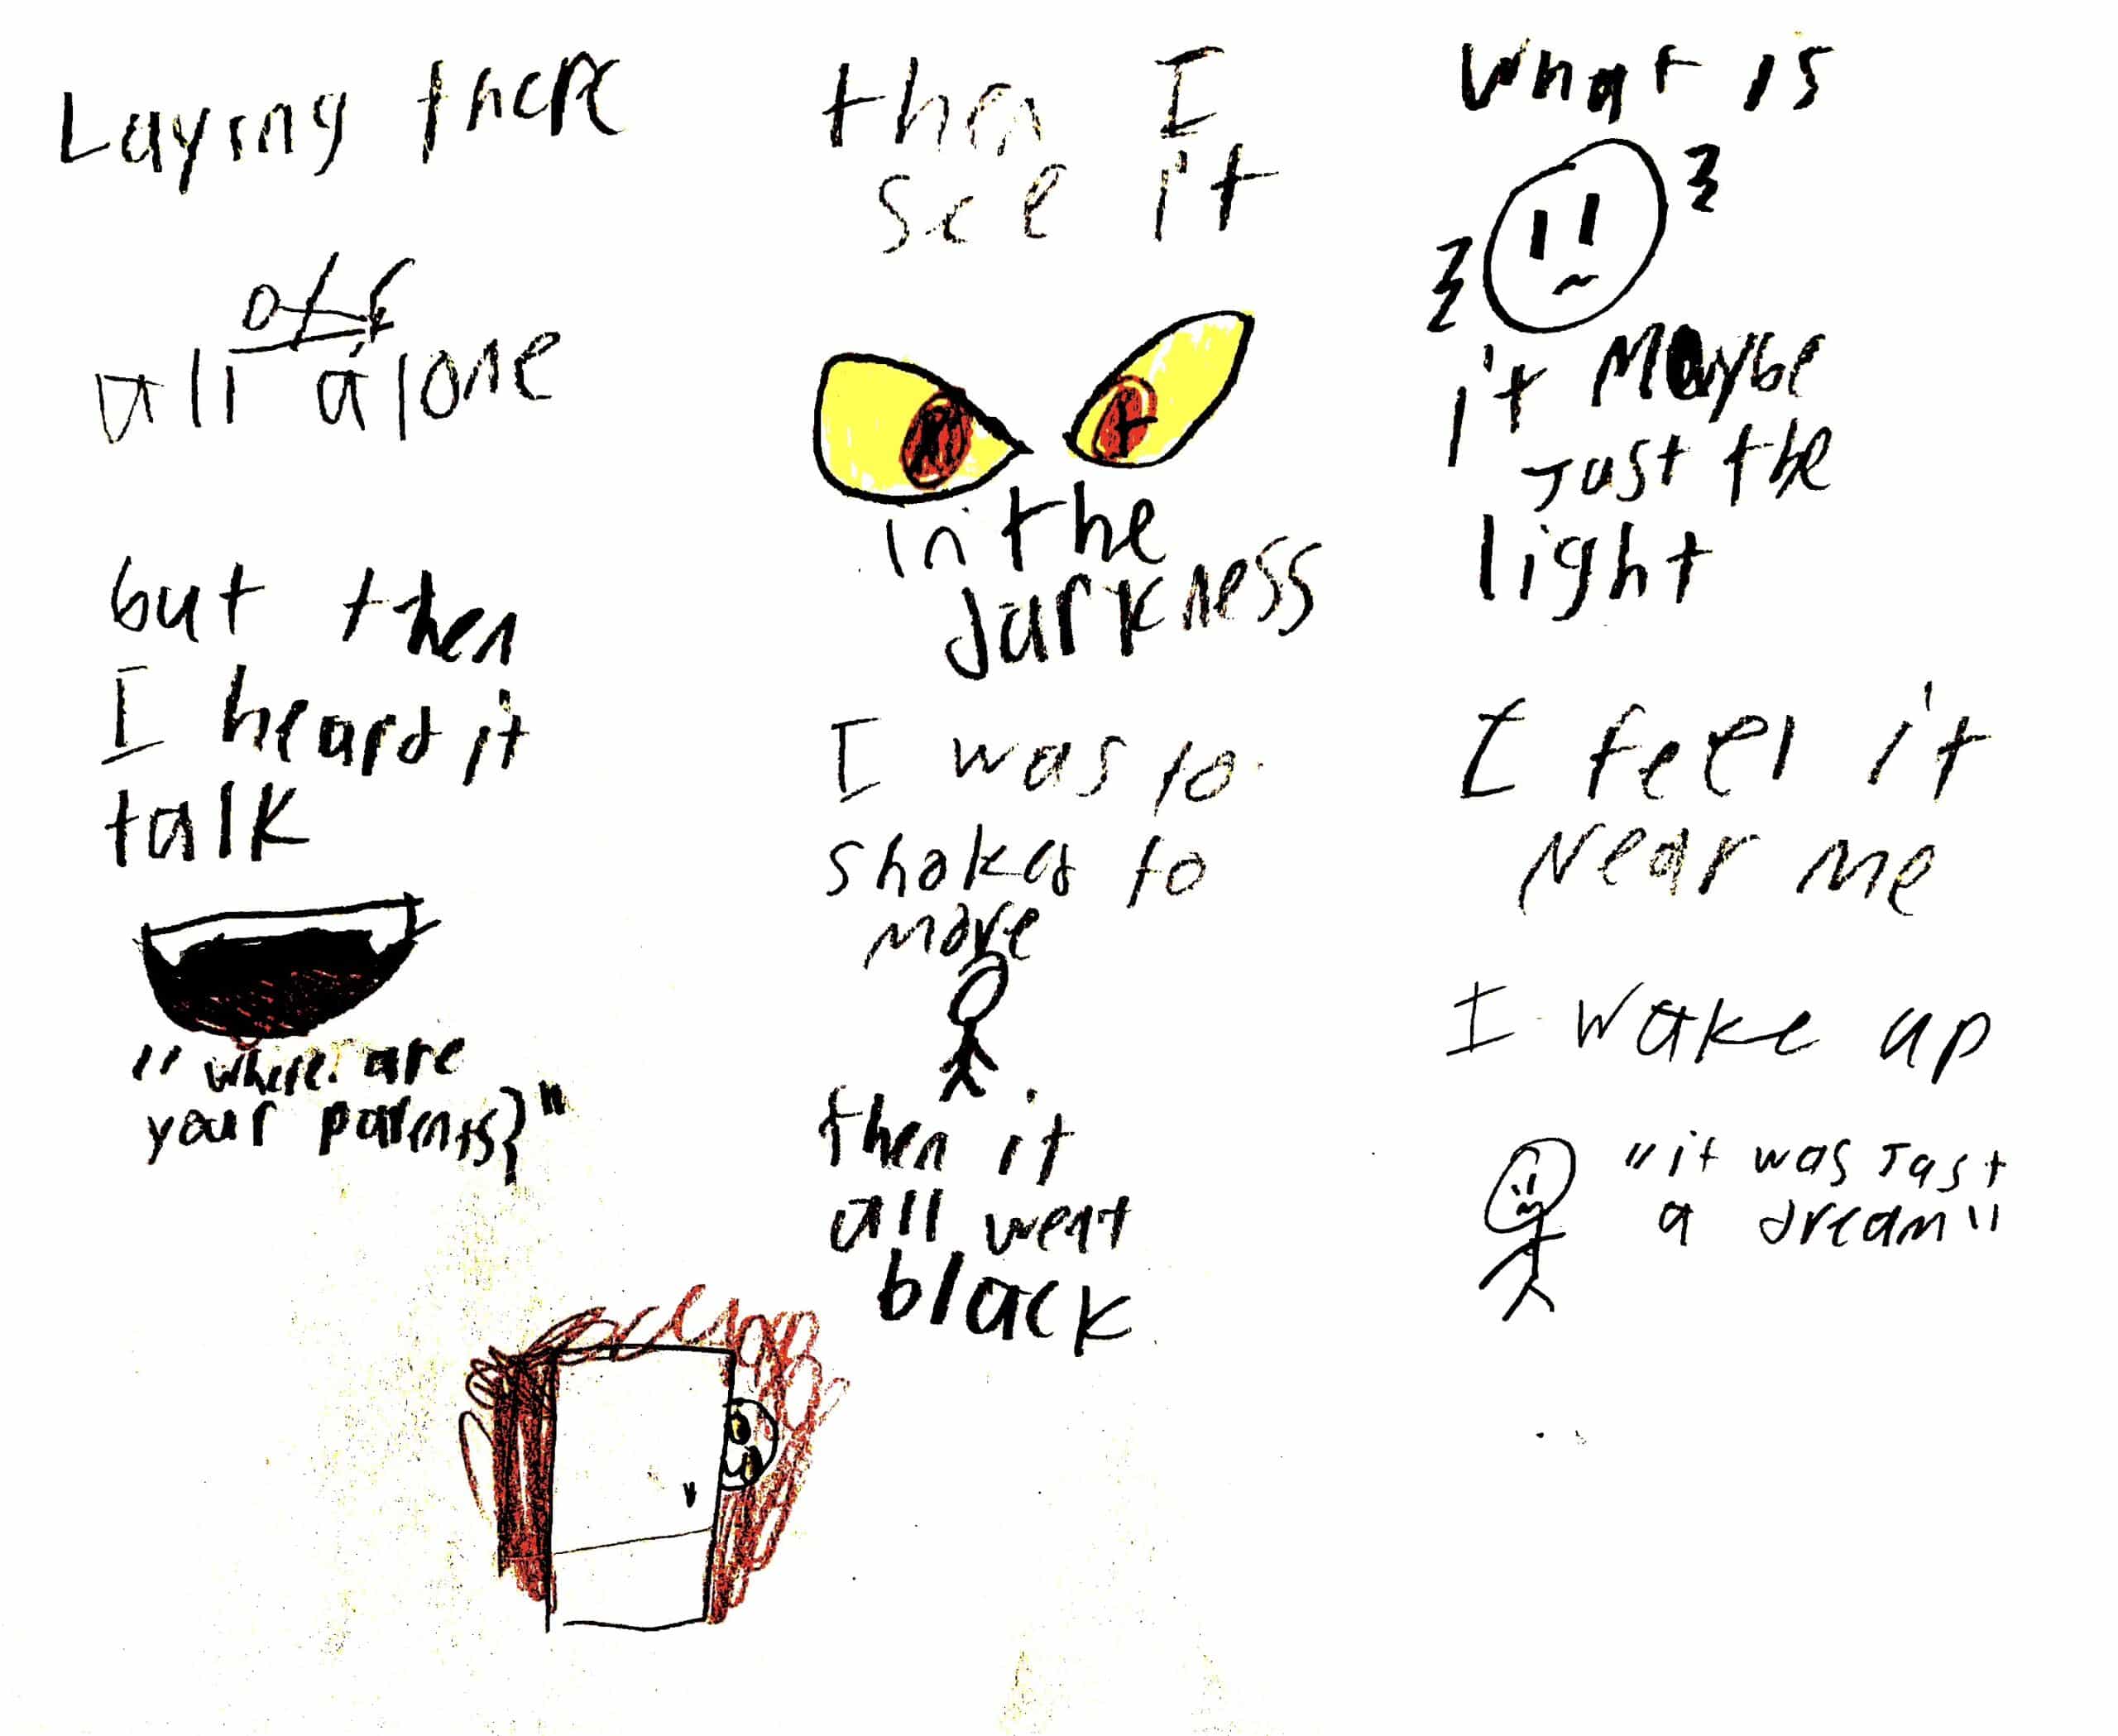 Laying there
all alone
but then
I heard it
talk
"where are
your parents?"
then I
see it
in the
darkness
I was to
shaked to
move
then it
all went
black
what is
it maybe
Just the
light
I feel it
Near me
I wake up
"it was Just
a dream"